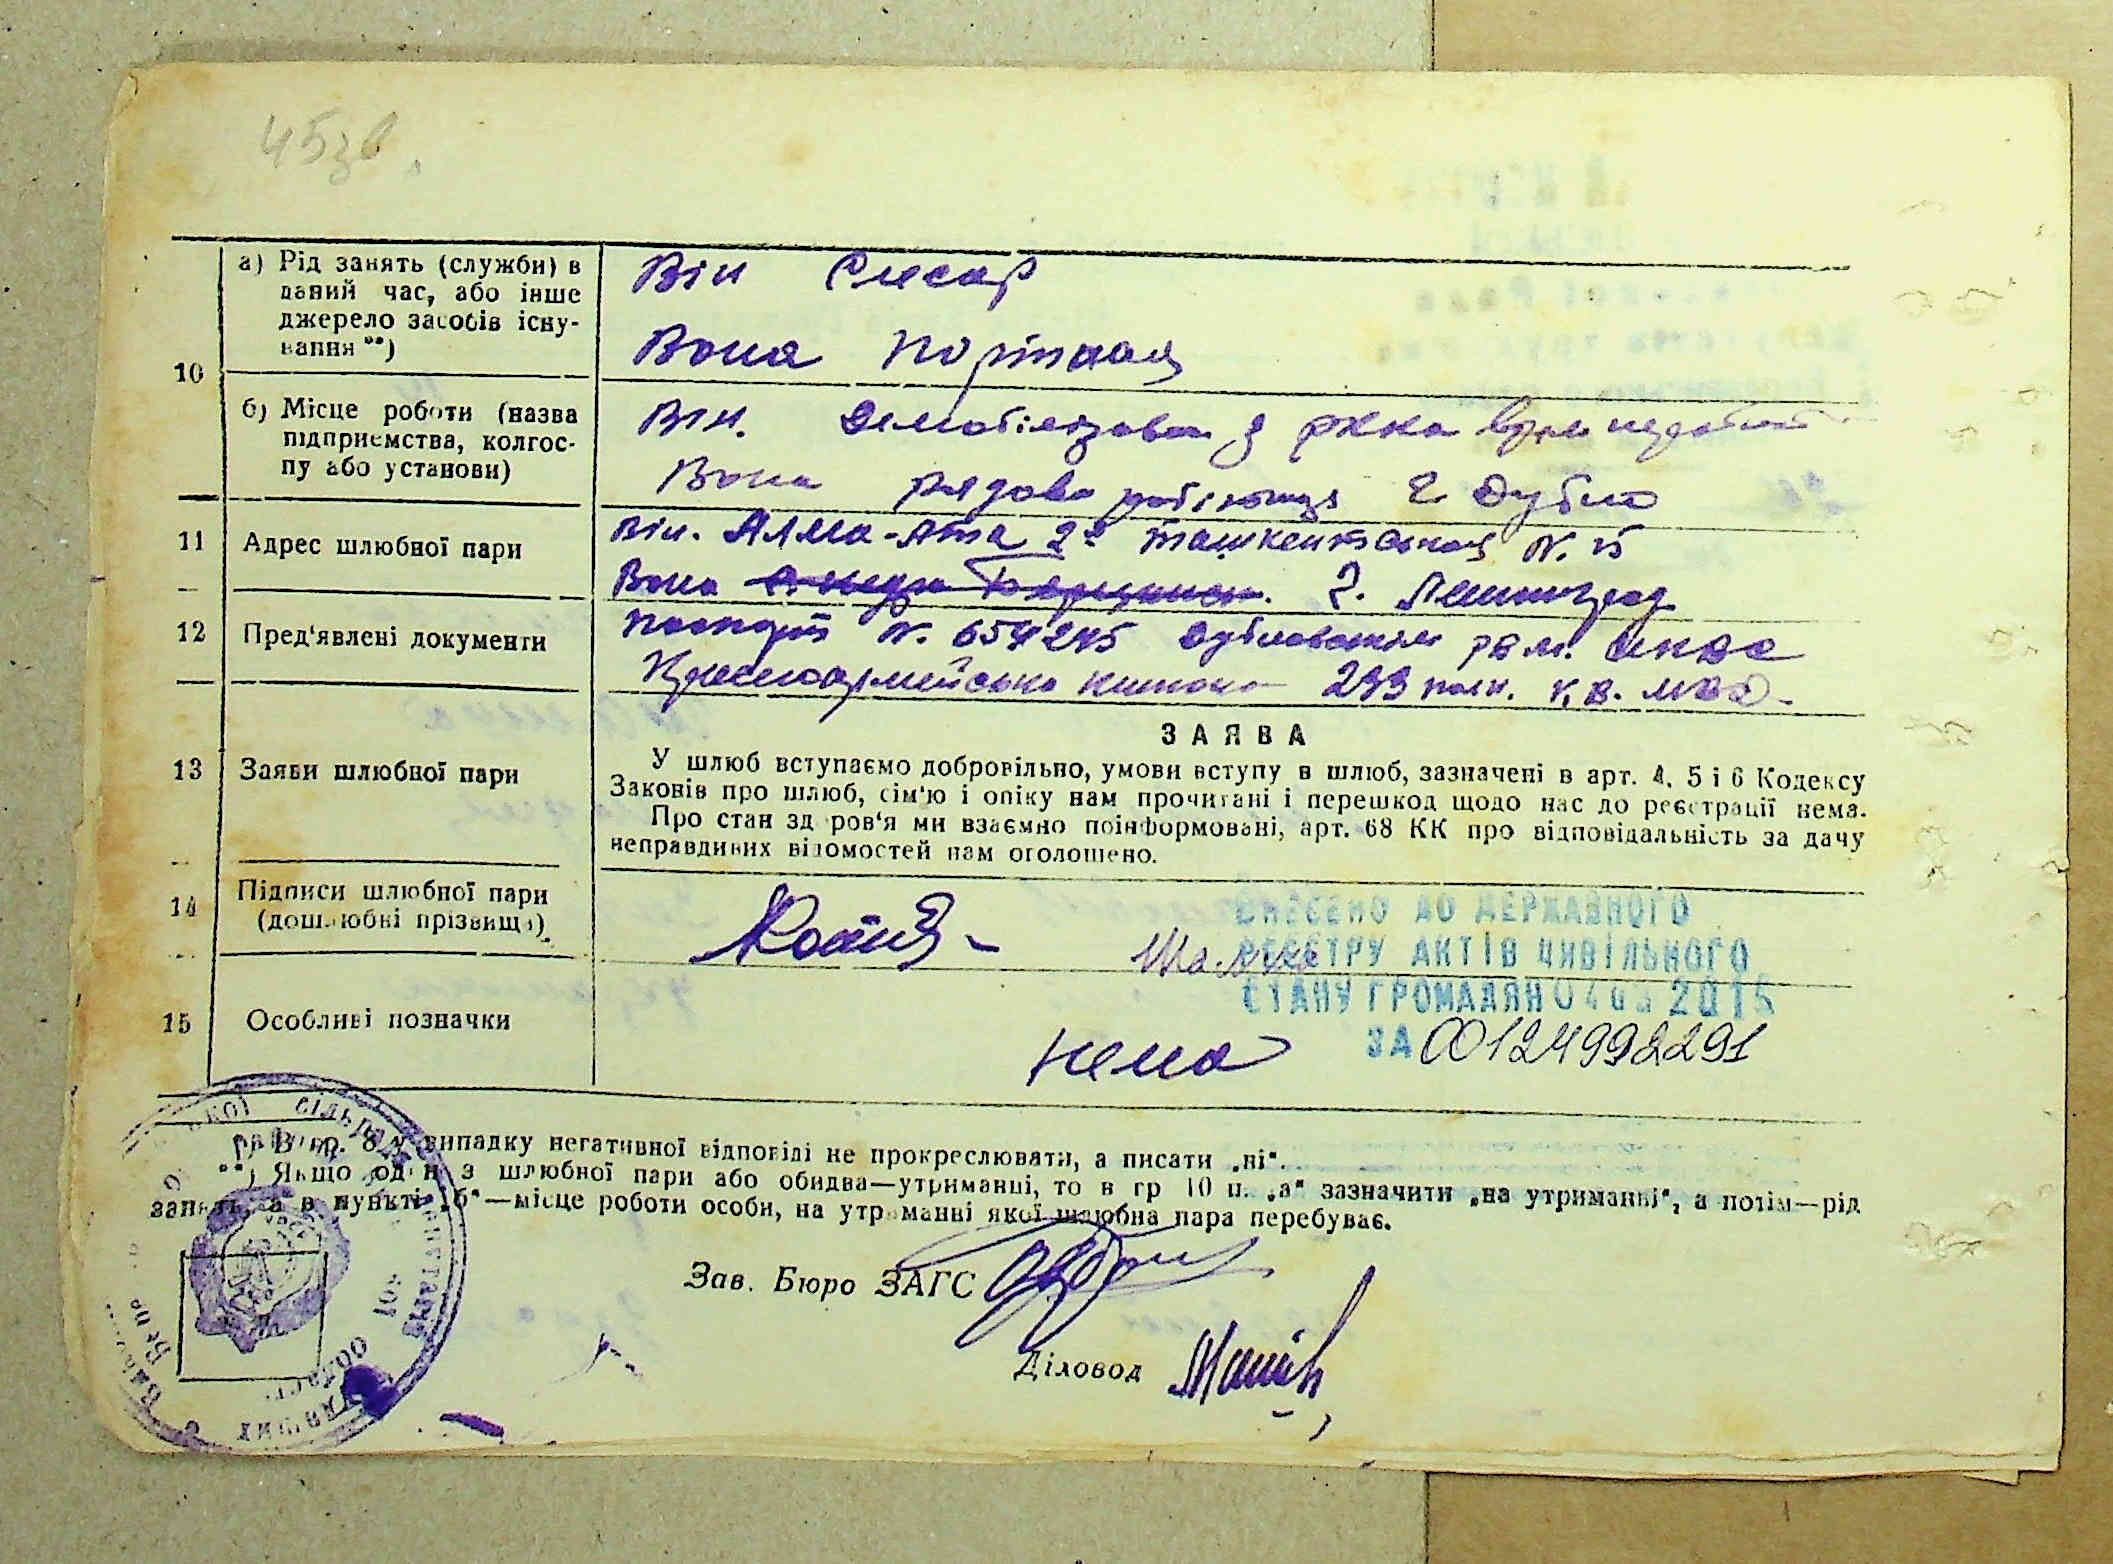 45зв.
а) Рід занять (служби) в
даний час, або інше
джерело засобів існу-
вання **)
Він Слесар
Вона портная
10
б) Місце роботи (назва
підприємства, колгос-
пу або установи)
Він. Демобілізован з РККА
Вона рядова робітниця г. Дубно
11 Адрес шлюбної пари
Він. Алма-Ата 2я Ташкентская N. 15
Вона г. Ленинград
12 Пред'явлені документи
Паспорт N. 654245 НКВС
Красноармейська книжка 233 полк. К.В. МВО
13 Заяви шлюбної пари
ЗАЯВА
У шлюб вступаємо добровільно, умови вступу в шлюб, зазначені в арт. 4, 5 і 6 Кодексу
Законів про шлюб, сім'ю і опіку нам прочитані і перешкод щодо нас до реєстрації нема.
Про стан здоров'я ми взаємно поінформовані, арт. 68 КК про відповідальність за дачу
неправдивих відомостей нам оголошено.
14 Підписи шлюбної пари
(дошлюбні прізвища)
ВНЕСЕНО ДО ДЕРЖАВНОГО
РЕЄСТРУ АКТІВ ЦИВІЛЬНОГО
СТАНУ ГРОМАДЯН 04 2015
ЗА 00124992291
15 Особливі позначки
нема
*) В гр. 8 у випадку негативної відповіді не прокреслювати, а писати „ні".
**) Якщо один з шлюбної пари або обидва—утриманці, то в гр 10 п. „а" зазначити „на утриманні", а потім—рід
занять, а в пункті „б"—місце роботи особи, на утриманні якої шлюбна пара перебуває.
Зав. Бюро ЗАГС
Діловод